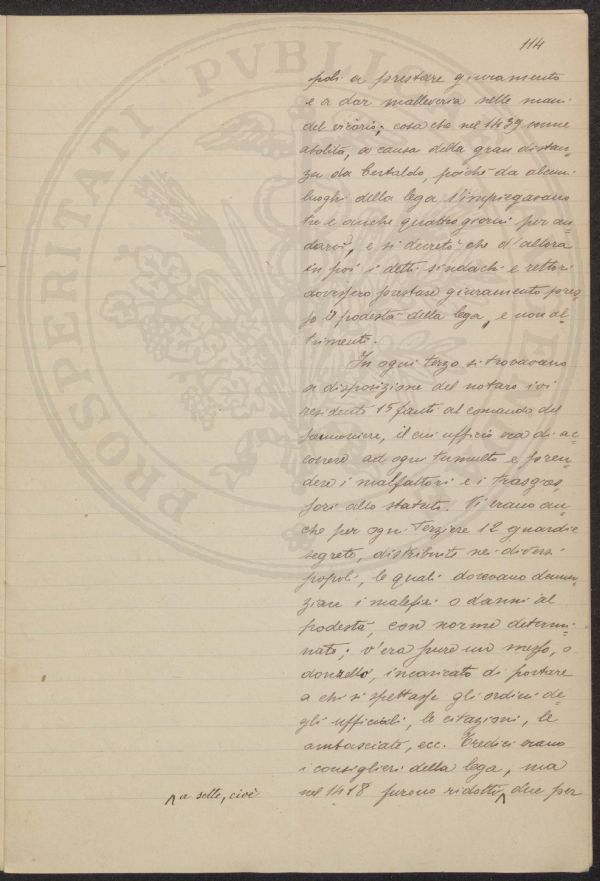 114
poli a prestare giuramento
e a dar malleveria nelle mani
del vicario; cosa che nel 1439 venne
abolito, a causa della gran distan-
za da Certaldo, poiché da alcuni
luoghi della lega s'impiegavano
tre e anche quattro giorni per an-
darvi, e si decretò che d'allora
in poi i detti sindachi e rettori
dovessero prestare giuramento pres-
so il podestà della lega, e non al-
trimenti.
In ogni terzo si trovavano
a disposizione del notaro ivi
residente 15 fanti al comando del
banderiere, il cui ufficio era di ac-
correre ad ogni tumulto e pren-
dere i malfattori e i trasgres-
sori allo statuto. Vi erano an-
che per ogni Terziere 12 guardie
segrete, distribuite nei diversi
popoli, le quali dovevano denun-
ziare i malefizi o danni al
podestà, con norme determi-
nate; v'era pure un messo, o
donzello, incaricato di portare
a chi si spettasse gli ordini de-
gli ufficiali, le citazioni, le
ambasciate, ecc. Tredici erano
i consiglieri della lega, ma
nel 1418 furono ridotti ^ due per
^ a sette, cioè
PROSPERITATI PVBLICAE